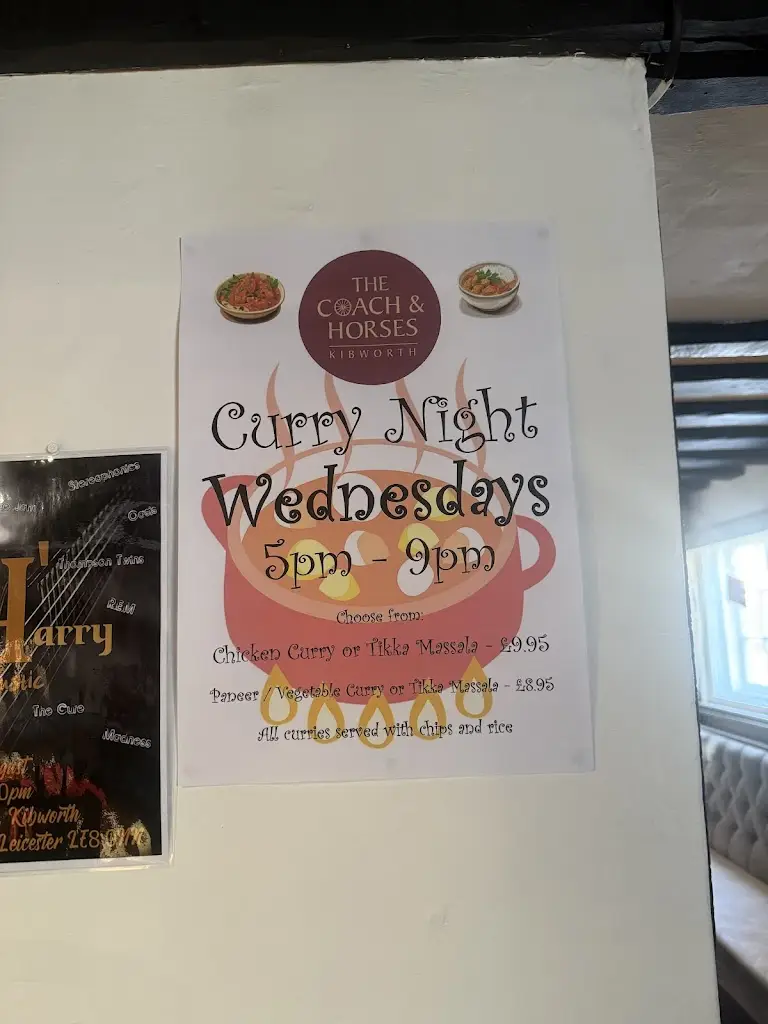 THE
COACH &
HORSES
KIBWORTH
Curry Night
Wednesdays
5pm - 9pm
Choose from:
Chicken Curry or Tikka Massala - £9.95
Paneer / Vegetable Curry or Tikka Massala - £8.95
All curries served with chips and rice
Stereophonics
Jam
Oasis
Thompson Twins
REM
Harry
The Cure
Madness
Kibworth
Leicester LE8